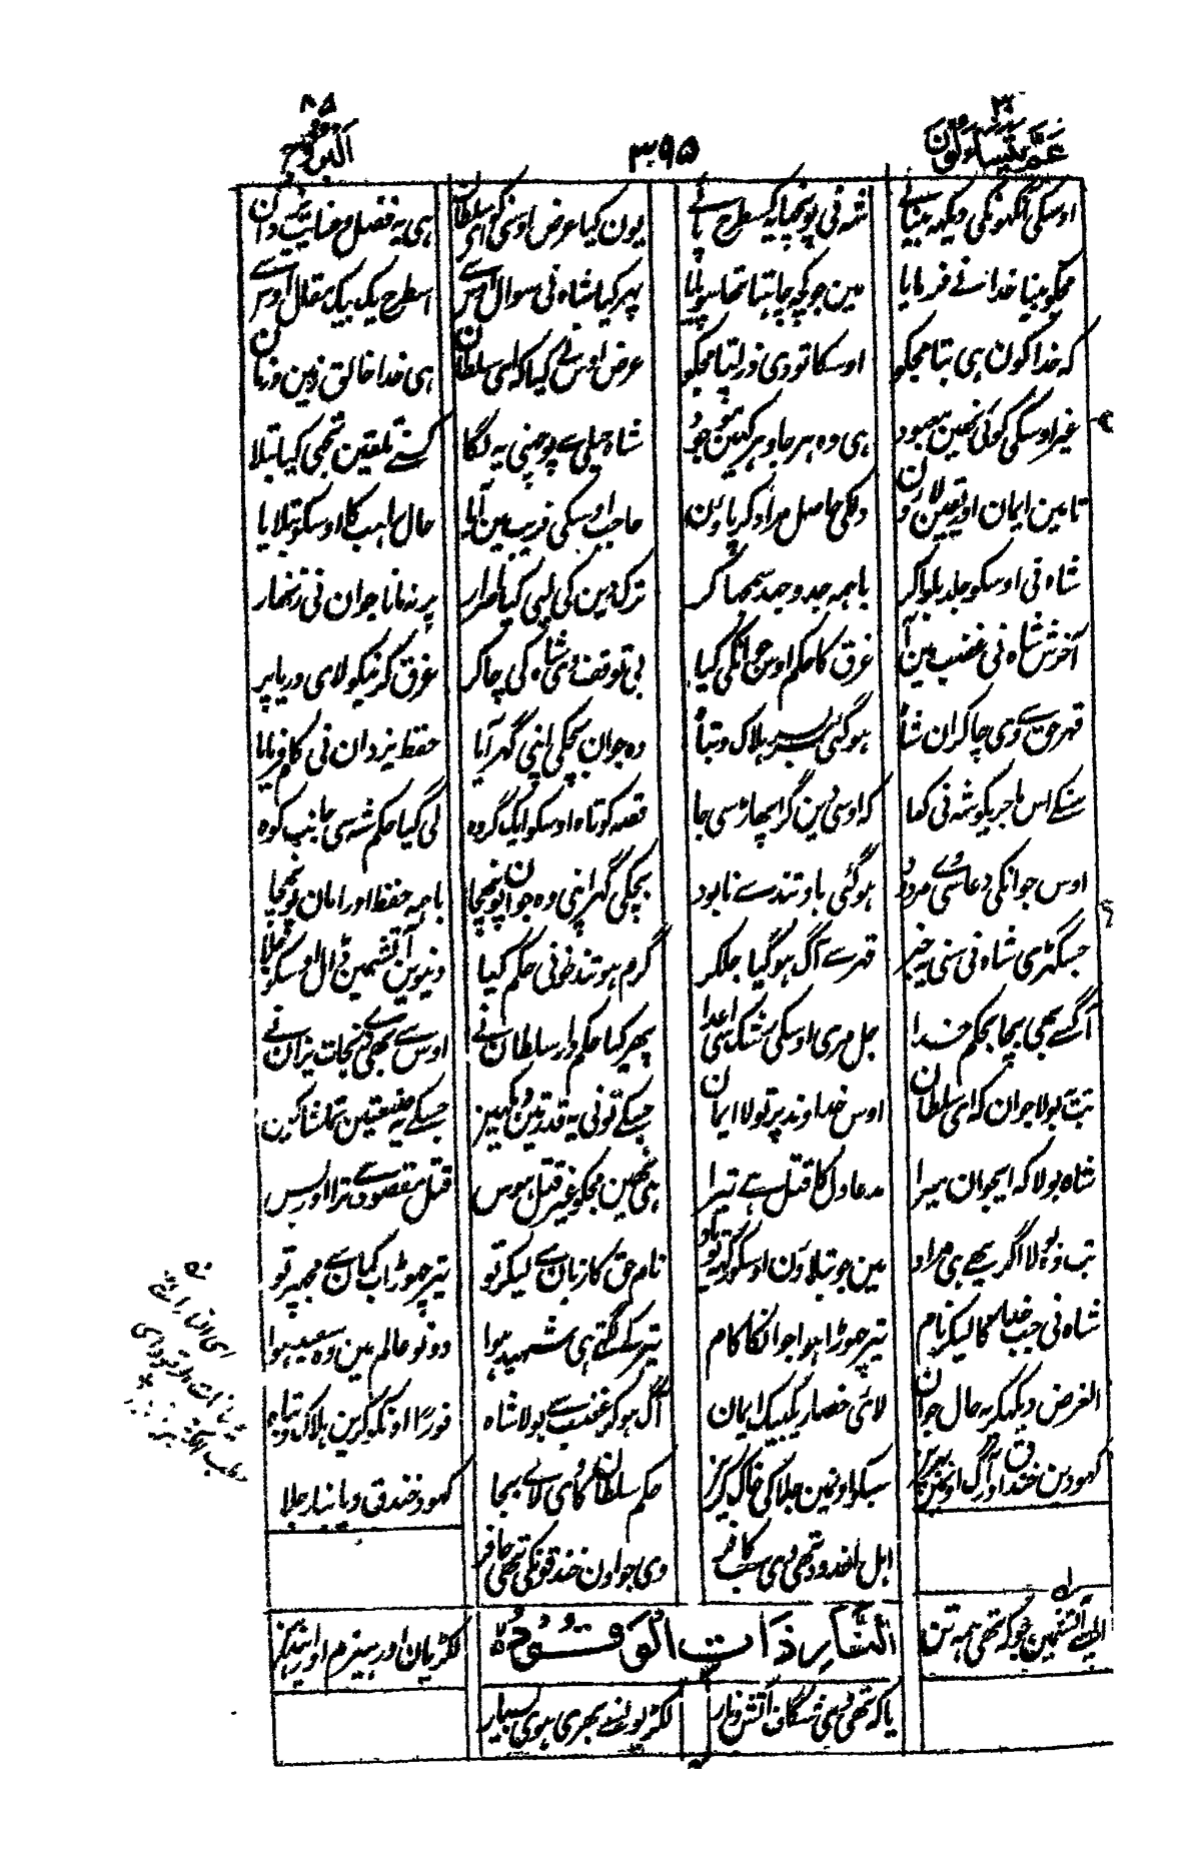 عم یتساءلون ۳۰
۳۹۵
البروج ۸۵
اوسکی آنکھونکی دیکھ بینائے شہ نی پونچھا یہ کسطرح پائے یون کیا عرض اوسنی کو ای سلطان ہی یہ فضل و عنایت
مجکو بینا خدا نے فرمایا مین جو کچھ چاہتا تھا سو پایا پھر کیا شاہ نی سوال اوس سے اسطرح یک بیک مقال اوس سے
کہ خدا کون ہی بتا مجکو اوسکا تو دی ذرا پتا مجکو عرض اوس نے کیا کہ ای سلطان ہی خدا خالق زمین و زمان
غیر اوسکی کوئی نھین معبود ہی وہ ہر جا و ہر کہین موجود شاہ حیلی سے پوچھنی یہ لگا کسنے تلقین تجھی کیا بتلا
تا مین ایمان اور یقین لاؤن دلکی حاصل مراد کر پاؤن حاجب اوسکی فریب مین آیا حال راہب کا اوسکو بتلایا
شاہ نی اوسکو جلد بلوا کر باہمہ جد و جہد سمجھا کر ترک دین کی لیی کیا اصرار پر نہ مانا جوان نی زنھار
آخرش شاہ نی غضب مین آ غرق کا حکم اوس جوانکی کیا بی توقف وہی شاہ کی چاکر غرق کرنیکو لای دریا پر
قہر حق سے وی چاکران شاہ ہو گئی سر بسر ہلاک و تباہ وہ جوان بچکی اپنی گھر آیا حفظ یزدان نی کام فرمایا
سنکے اس ماجریکو شہ نی کھا کہ اوسی دین گرا پھاڑ سی جا قصہ کوتاہ اوسکو ایک گروہ لی گیا حکم شہ سی جانب کوہ
اوس جوانکی دعا سے وے مردود ہو گئی باد تند سے نابود بچکی گھر اپنی وہ جوان پونہچا باہمہ حفظ اور امان پونہچا
جسگھڑی شاہ نی سنی یہ خبر قہر سے آگ ہو گیا جلکر گرم ہو تند خو نی حکم کیا دیوین آتش مین ڈال اوسکو جلا
آگ سے بھی بچا بحکم خدا جل مری اوسکی سب اعدا پھر کیا حکم دار سلطان نے اوس سے بھی دی نجات یزدان نے
تب بولا جوان کہ ای سلطان اوس خداوند پر تو لا ایمان جسکے تونی یہ قدرتین دیکھین جسکے یہ صنعتین تماشا کین
شاہ بولا کہ ایجوان میرا مدعا دل کا قتل ہے تیرا ہی نھین مجکو غیر قتل ہوس قتل مقصود ہے ترا اور بس
تب وہ بولا اگر یہے ہی مراد مین جو بتلاؤن اوسکو رکھ تو یاد نام حق کا زبان سے لیکر تو تیر چھوڑ اب کمان سے مجھپر تو
شاہ نی جب خدا کا لیکر نام تیر چھوڑا ہوا جوانکا کام تیر کے لگتے ہی شہید ہوا دونو عالم مین وہ سعید ہوا
الغرض دیکھکر یہ حال جوان لائی حضار یکبیک ایمان آگ ہو کر غضب سے بولا شاہ فورًا اونکو کرین ہلاک و تباہ
کھودین خندق اور آگ سبکو اونمین جلا کی خاک کرین حکم سلطان کا وہی لائے بجا کھود خندق دیا نھین جلا
اہل اخدود تھی وہی سب کافر وی جو اون خندقونکی تھی حافر
النَّارِ ذَاتِ الْوَقُوْدِ
ایسے آتش مین جو کہ تھی ہمہ تن لکڑیان اور ہیزم اور ایندھن
یا کہ تھی وہی شگاف آتش و نار لکڑیونسے بھری ہوئی بسیار